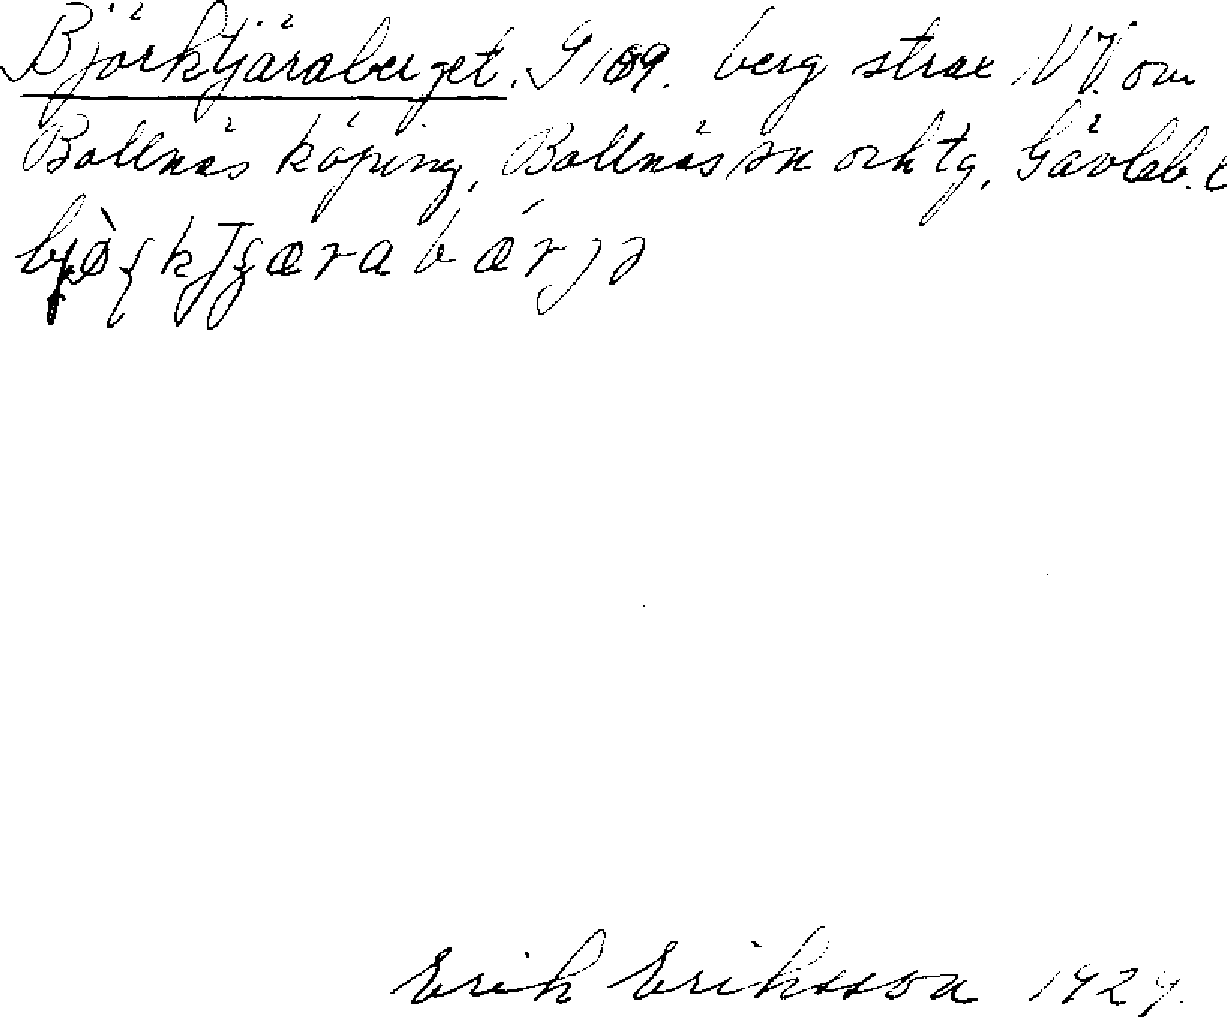 Björktjäraberget. G 109. berg strax NV. om
Bollnäs köping, Bollnäs sn och tg, Gävleb. l
Erik Eriksson 1929.